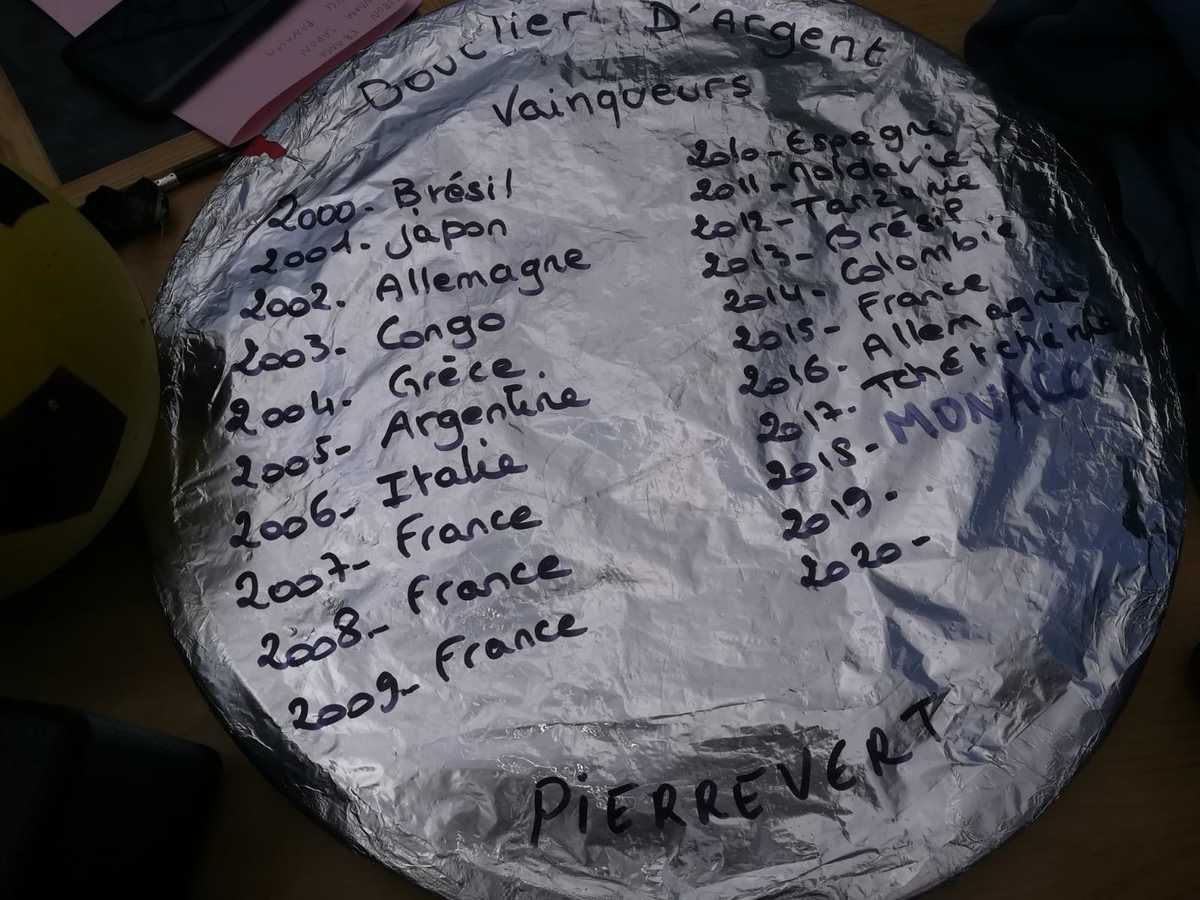 Bouclier D'Argent
Vainqueurs
2000- Brésil
2001- japon
2002- Allemagne
2003- Congo
2004- Grèce.
2005- Argentine
2006- Italie
2007- France
2008- France
2009- France
2010- Espagne
2011- Moldavie
2012- Tanzanie
2013- Brésil
2014- Colombie
2015- France
2016- Allemagne
2017- Tchétchénie
2018- MONACO
2019-
2020-
PiERREVERT